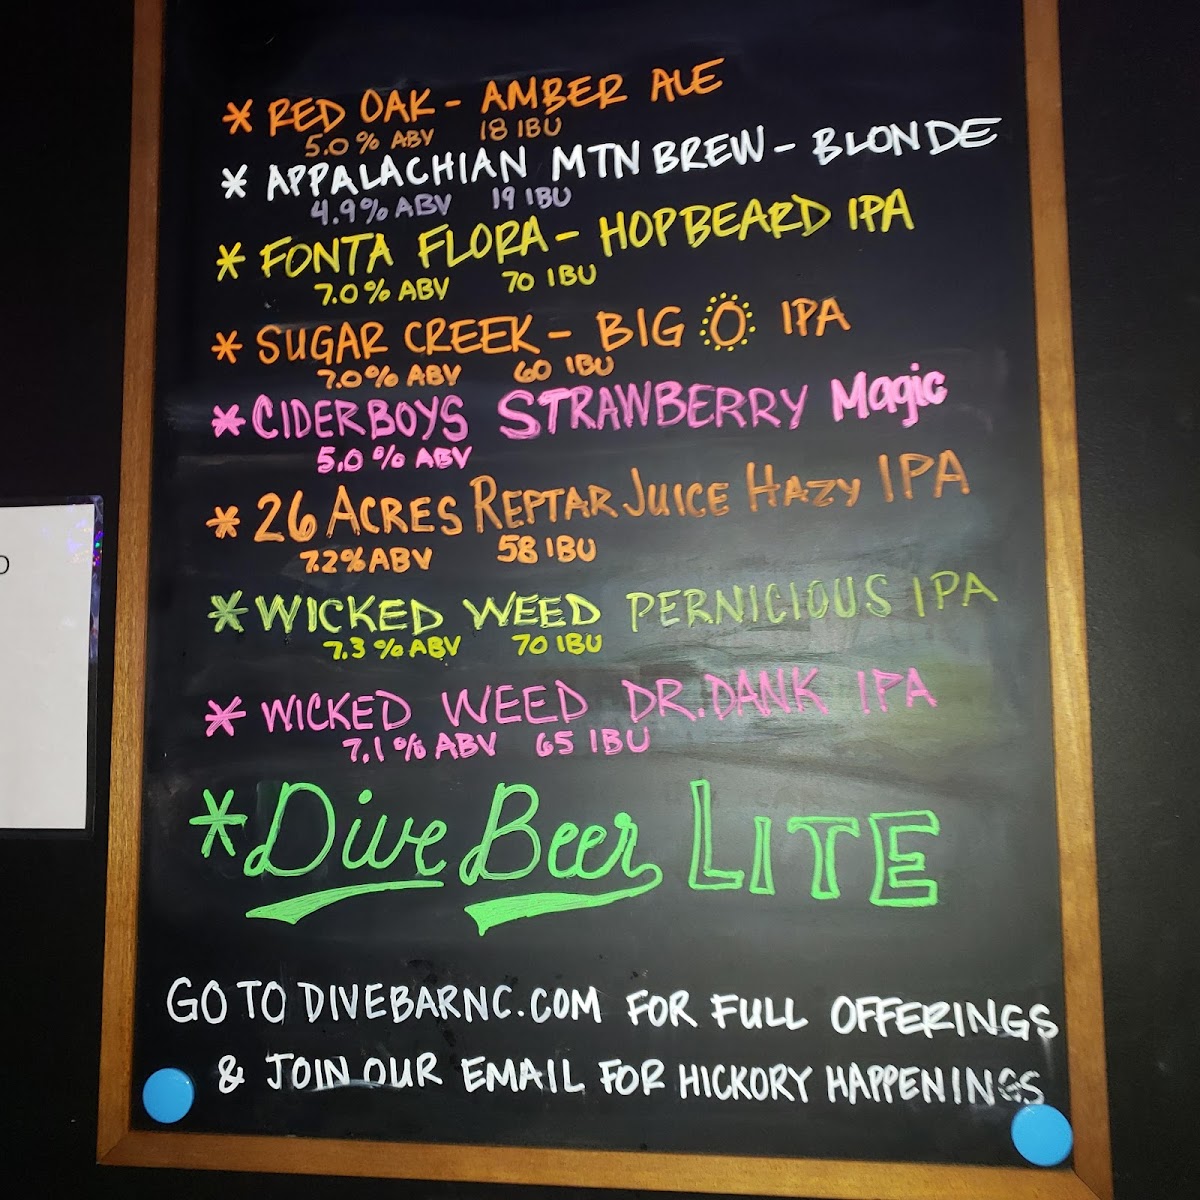 * RED OAK - AMBER ALE
5.0% ABV 18 IBU
* APPALACHIAN MTN BREW - BLONDE
4.9% ABV 19 IBU
* FONTA FLORA - HOPBEARD IPA
7.0% ABV 70 IBU
* SUGAR CREEK - BIG O IPA
7.0% ABV 60 IBU
* CIDERBOYS STRAWBERRY Magic
5.0% ABV
* 26 ACRES REPTAR JUICE HAZY IPA
7.2% ABV 58 IBU
* WICKED WEED PERNICIOUS IPA
7.3% ABV 70 IBU
* WICKED WEED DR. DANK IPA
7.1% ABV 65 IBU
* Dive Beer LITE
GO TO DIVEBARNC.COM FOR FULL OFFERINGS
& JOIN OUR EMAIL FOR HICKORY HAPPENINGS